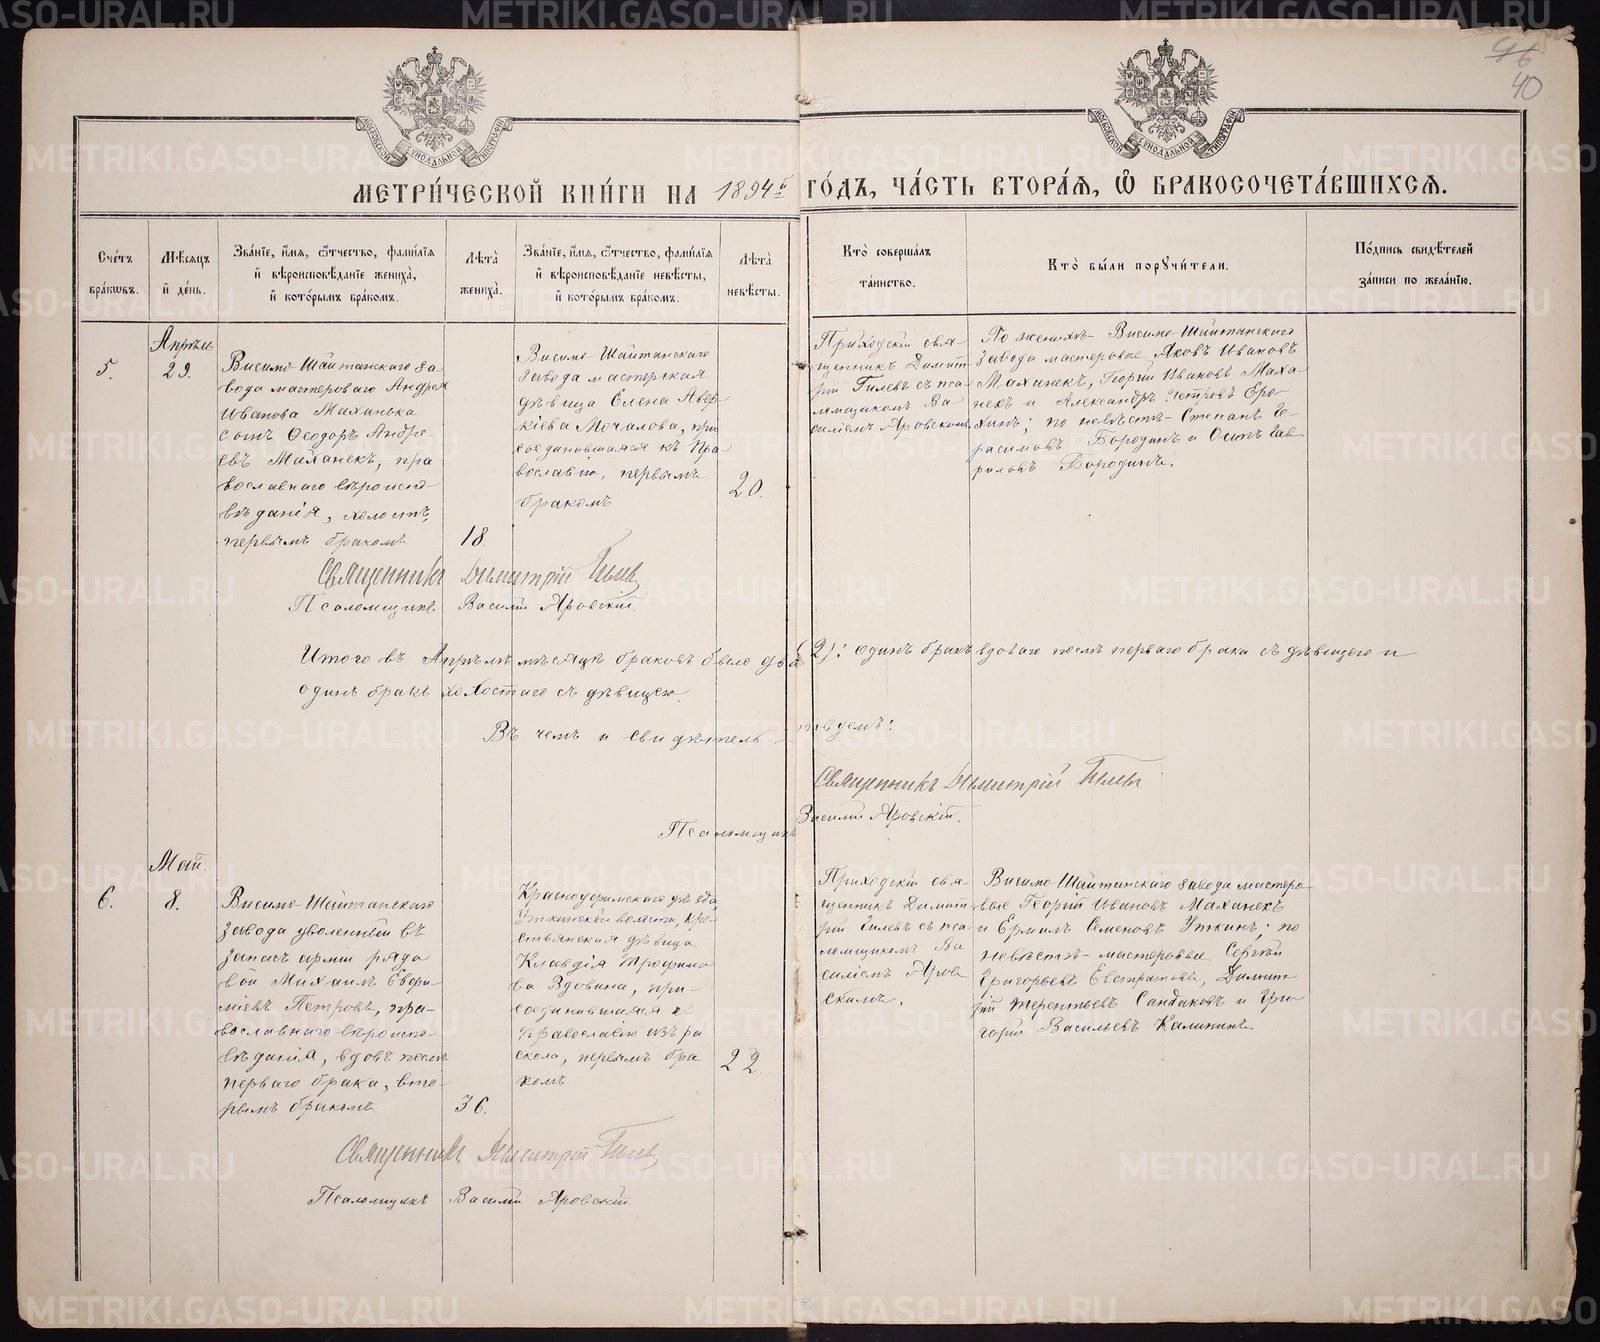 96
40
МОСКОВСКОЙ СѴНОДАЛЬНОЙ ТИПОГРАФІИ
МОСКОВСКОЙ СѴНОДАЛЬНОЙ ТИПОГРАФІИ
МЕТРИ́ЧЕСКОЙ КНИ́ГИ НА 1894й ГО́ДЪ, ЧА́СТЬ ВТОРА́Я, Ѡ БРАКОСОЧЕТА́ВШИХСЯ.
Сче́тъ бра́кѡвъ.
Мѣ́сяцъ и де́нь.
Зва́ніе, и́мя, ѻ́тчество, фами́лія
и҆ вѣроисповѣ́даніе жениха̀,
и҆ кото́рымъ бра́комъ.
Лѣ́та
жениха̀.
Зва́ніе, и́мя, ѻ́тчество, фами́лія
и҆ вѣроисповѣ́даніе невѣ́сты,
и҆ кото́рымъ бра́комъ.
Лѣ́та
невѣ́сты.
Кто̀ соверша́лъ
та́инство.
Кто̀ бы́ли поручи́тели.
По́дпись свидѣ́телей
за́писи по жела́нію.
5.
Апрѣль
29.
Висимо-Шайтанскаго за-
вода мастероваго Андрея
Иванова Маханька
сынъ Ѳеодоръ Андре-
евъ Маханекъ, пра
вославнаго вѣроиспо
вѣданія, холостъ,
первымъ бракомъ
18.
Висимо-Шайтанскаго
завода мастерская
дѣвица Елена Авер
кіева Мочалова, при
соединившаяся къ Пра
вославію, первымъ
бракомъ
20.
Приходскій свя-
щенникъ Димит
рій Гилевъ съ пса-
ломщикомъ Ва
силіемъ Яровскимъ
По женихѣ- Висимо-Шайтанскаго
завода мастеровые Яковъ Ивановъ
Маханекъ, Георгій Ивановъ Маха-
некъ и Александръ Петровъ Еро-
хинъ; по невѣстѣ- Степанъ Ге-
расимовъ Бородинъ и Осипъ Гав
риловъ Бородинъ.
Священникъ Димитрій Гилевъ
Псаломщикъ Василій Яровскій.
Итого въ Апрѣлѣ мѣсяцѣ браковъ было два (2): одинъ бракъ вдоваго послѣ перваго брака съ дѣвицею и
одинъ бракъ холостаго съ дѣвицею.
Въ чемъ и свидѣтель-твуемъ:
Священникъ Димитрій Гилевъ
Псаломщикъ Василій Яровскій.
6.
Май.
8.
Висимо-Шайтанскаго
завода уволенный въ
запасъ арміи рядо
вой Михаилъ Евфи-
міевъ Петровъ, пра-
вославнаго вѣроиспо-
вѣданія, вдовъ послѣ
перваго брака, вто-
рымъ бракомъ
36.
Красноуфимскаго уѣзда
Уткинской волости, кре-
стьянская дѣвица
Клавдія Трофимо
ва Вдовина, при-
соединившаяся къ
Православію изъ ра
скола, первымъ бра
комъ
22.
Приходскій свя-
щенникъ Димит
рій Гилевъ съ пса-
ломщикомъ Ва
силіемъ Яров
скимъ.
Висимо-Шайтанскаго завода мастеро-
вые Георгій Ивановъ Маханекъ
и Ермилъ Семеновъ Уткинъ; по
невѣстѣ- мастеровые Сергѣй
Григорьевъ Евстратовъ, Димит-
рій Терентьевъ Сандаковъ и Гри-
горій Васильевъ Калининъ.
Священникъ Димитрій Гилевъ
Псаломщикъ Василій Яровскій
METRIKI.GASO-URAL.RU